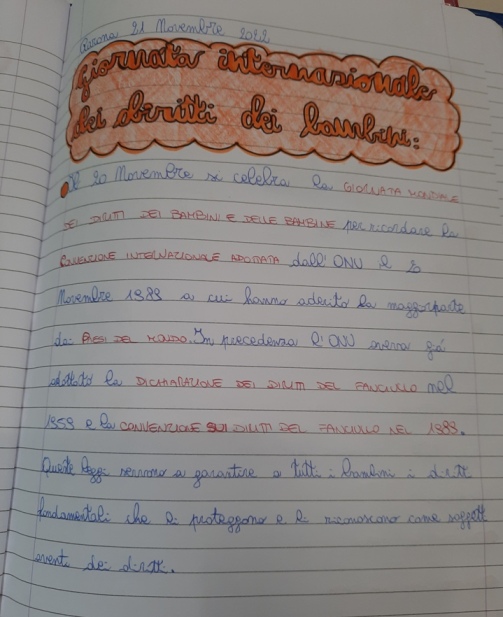 21 Novembre 2022
giornata internazionale
dei diritti dei bambini:
Il 20 Novembre si celebra la GIORNATA MONDIALE
DEI DIRITTI DEI BAMBINI E DELLE BAMBINE per ricordare la
CONVENZIONE INTERNAZIONALE ADOTTATA dall'ONU il 20
Novembre 1989 a cui hanno aderito la maggior parte
dei PAESI DEL MONDO. In precedenza l'ONU aveva già
adottato la DICHIARAZIONE DEI DIRITTI DEL FANCIULLO nel
1959 e la CONVENZIONE SUI DIRITTI DEL FANCIULLO NEL 1989.
Queste leggi servono a garantire a tutti i bambini i diritti
fondamentali che li proteggono e li riconoscono come soggetti
aventi dei diritti.